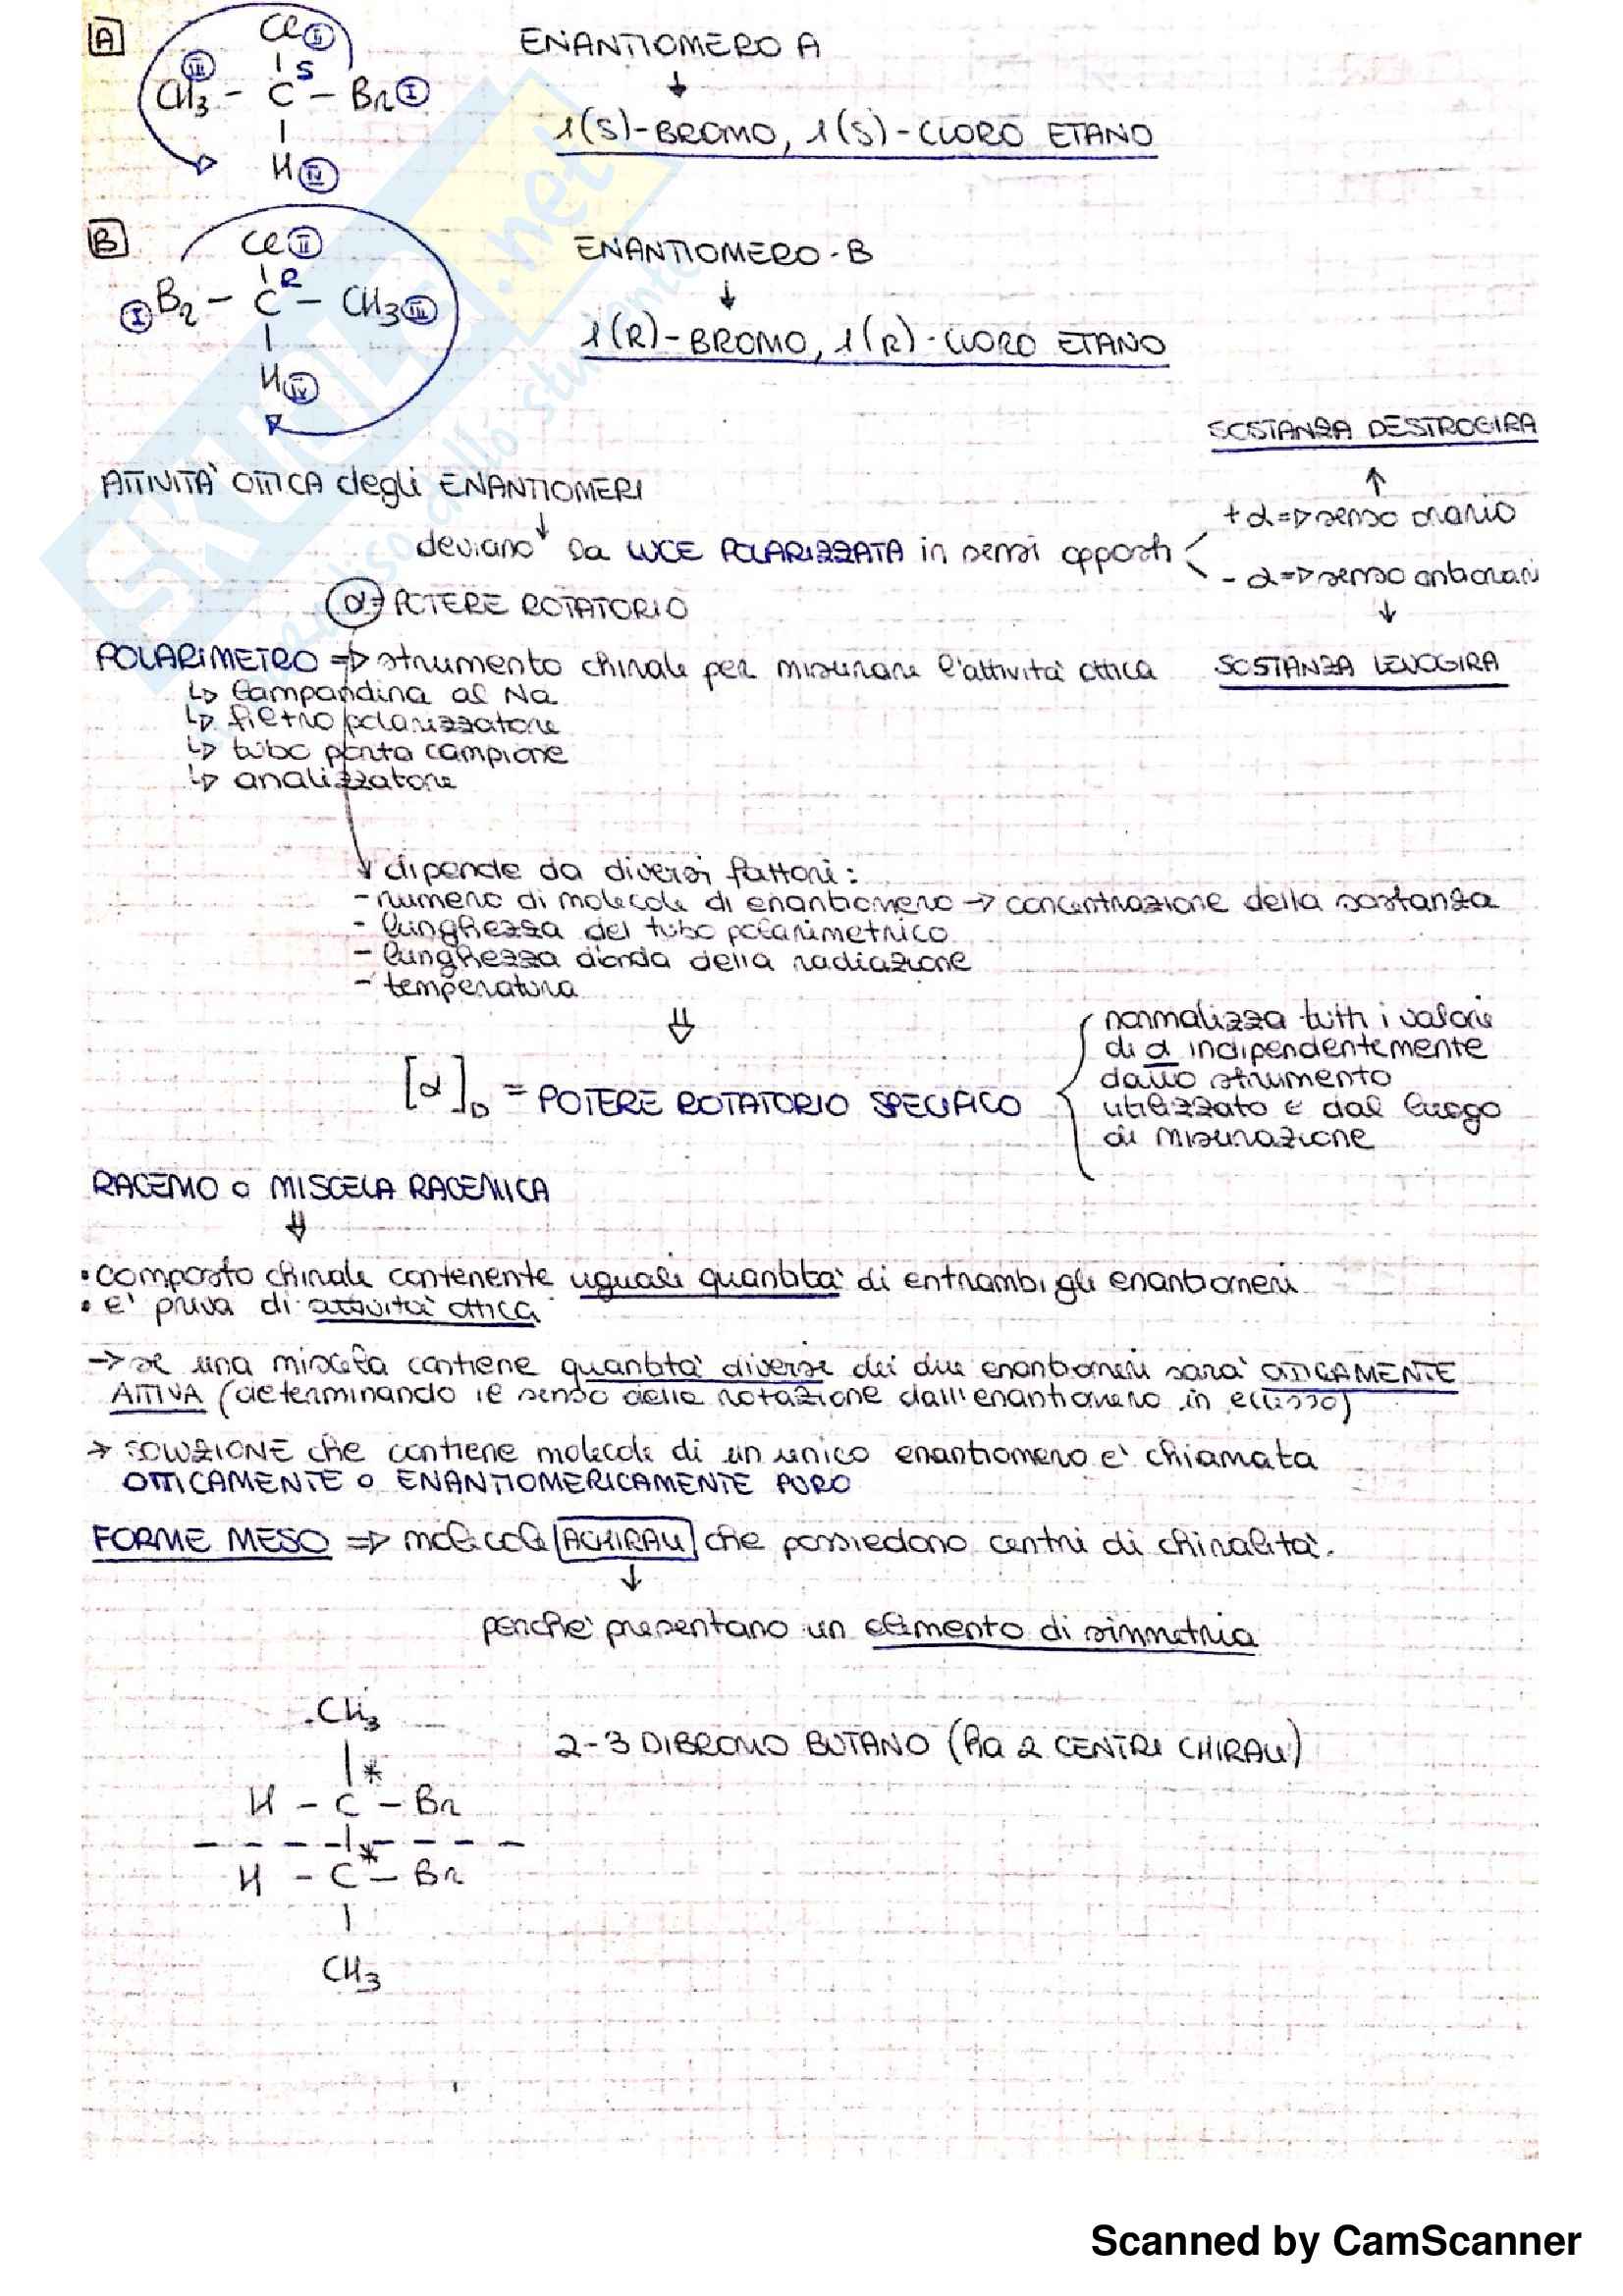 A
Cl II
III S
CH3 - C - Br I
H IV
ENANTIOMERO A
1(S)-BROMO, 1(S)-CLORO ETANO
B
Cl II
R
I Br - C - CH3 III
H IV
ENANTIOMERO-B
1(R)-BROMO, 1(R)-CLORO ETANO
SKUOLA.net
SOSTANZA DESTROGIRA
ATTIVITÀ OTTICA degli ENANTIOMERI
+α => senso orario
deviano la LUCE POLARIZZATA in sensi opposti
-α => senso antiorari
α => POTERE ROTATORIO
POLARIMETRO => strumento chirale per misurare l'attività ottica
SOSTANZA LEVOGIRA
↳ lampadina al Na
↳ filtro polarizzatore
↳ tubo porta campione
↳ analizzatore
dipende da diversi fattori:
- numero di molecole di enantiomero → concentrazione della sostanza
- lunghezza del tubo polarimetrico
- lunghezza d'onda della radiazione
- temperatura
[α]D = POTERE ROTATORIO SPECIFICO
normalizza tutti i valori
di α indipendentemente
dallo strumento
utilizzato e dal luogo
di misurazione
RACEMO o MISCELA RACEMICA
• composto chirale contenente uguali quantità di entrambi gli enantiomeri
• e' priva di attività ottica
→ se una miscela contiene quantità diverse dei due enantiomeri sarà OTTICAMENTE
ATTIVA (determinando il senso della rotazione dall'enantiomero in eccesso)
→ SOLUZIONE che contiene molecole di un unico enantiomero e' chiamata
OTTICAMENTE o ENANTIOMERICAMENTE PURO
FORME MESO => molecole ACHIRALI che possiedono centri di chiralità.
perché presentano un elemento di simmetria
CH3
*
H - C - Br
*
H - C - Br
CH3
2-3 DIBROMO BUTANO (ha 2 CENTRI CHIRALI)
Scanned by CamScanner